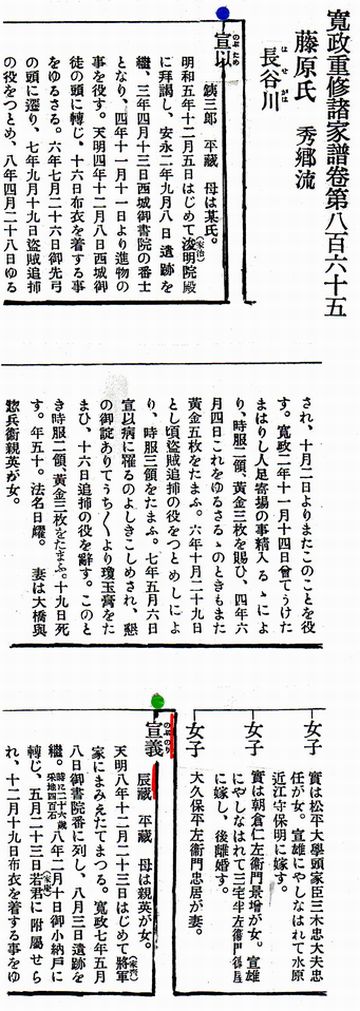 寛政重修諸家譜卷第八百六十五
藤原氏　秀鄕流
長谷川
はせがは
宣以
のぶため
銕三郎　平藏　母は某氏。
明和五年十二月五日はじめて浚明院殿(家治)
に拜謁し、安永二年九月八日遺跡を
繼、三年四月十三日西城御書院の番士
となり、四年十一月十一日より進物の
事を役す。天明四年十二月八日西城御
徒の頭に轉じ、十六日布衣を着する事
をゆるさる。六年七月二十六日御先弓
の頭に遷り、七年九月十九日盜賊追捕
の役をつとめ、八年四月二十八日ゆる
され、十月二日よりまたこのことを役
す。寛政二年十一月十四日曾てうけた
まはりし人足寄場の事精入るゝによ
り、時服二領、黃金三枚を賜ひ、四年六
月四日これをゆるさるゝのときもまた
黃金五枚をたまふ。六年十月二十九日
とし頃盜賊追捕の役をつとめしによ
り、時服三領をたまふ。七年五月六日
宣以病に罹るのよしきこしめされ、懇
の御諚ありてうち〳〵より瓊玉膏をた
まひ、十六日追捕の役を辭す。このと
き時服二領、黃金三枚をたまふ。十九日死
す。年五十。法名日耀。　妻は大橋與
惣兵衞親英が女。
女子
實は松平大學頭家臣三木忠大夫忠
任が女。宣雄にやしなはれて水原
近江守保明に嫁す。
女子
實は朝倉仁左衞門景增が女。宣雄
にやしなはれて三宅半左衞門
に嫁し、後離婚す。
女子
大久保平左衞門忠居が妻。
宣義
のぶのり
辰藏　平藏　母は親英が女。
天明八年十二月二十三日はじめて將軍(家齊)
家にまみえたてまつる。寛政七年五月
八日御書院番に列し、八月三日遺跡を
繼。時に二十六歲采地四百石八年二月十日御小納戶に
轉じ、五月二十三日若君(家慶)に附屬せら
れ、十二月十九日布衣を着する事をゆ